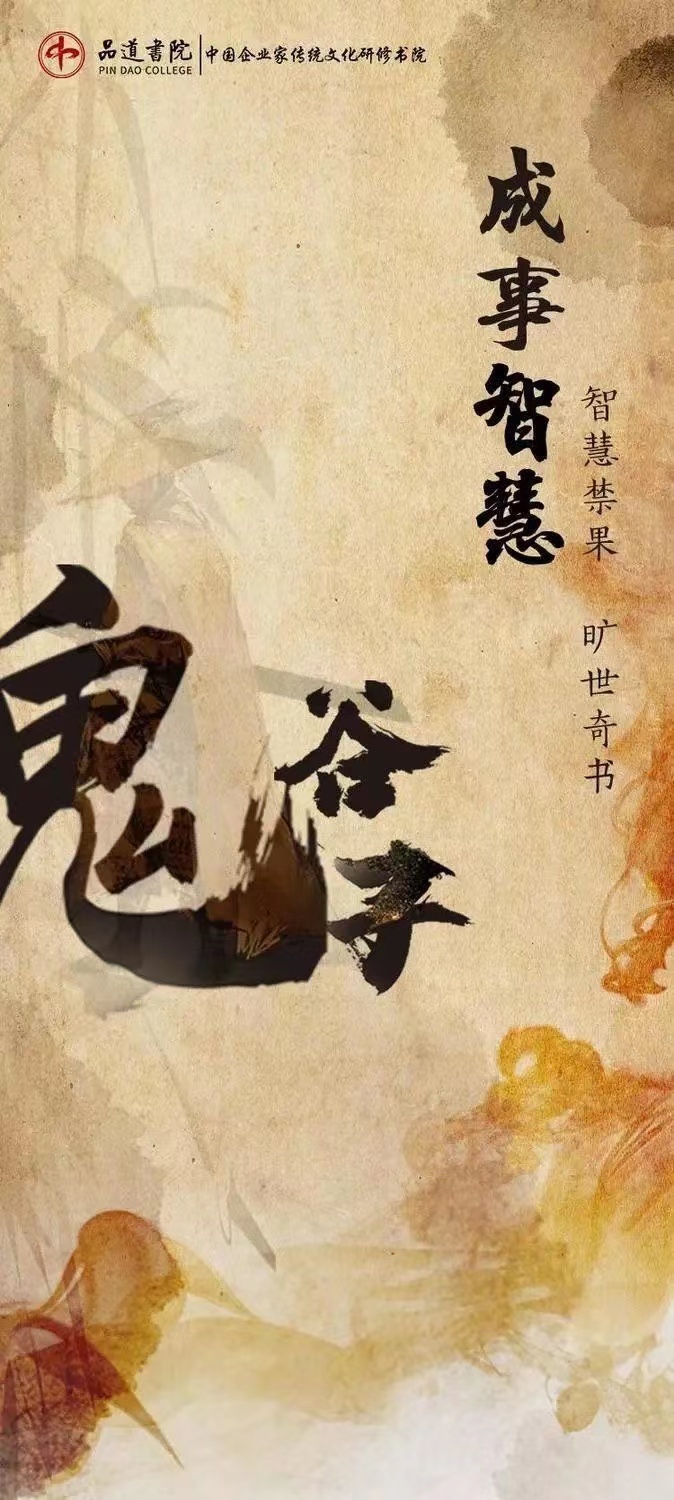 品道书院
PIN DAO COLLEGE
中国企业家传统文化研修书院
成事智慧
智慧禁果 旷世奇书
鬼谷子